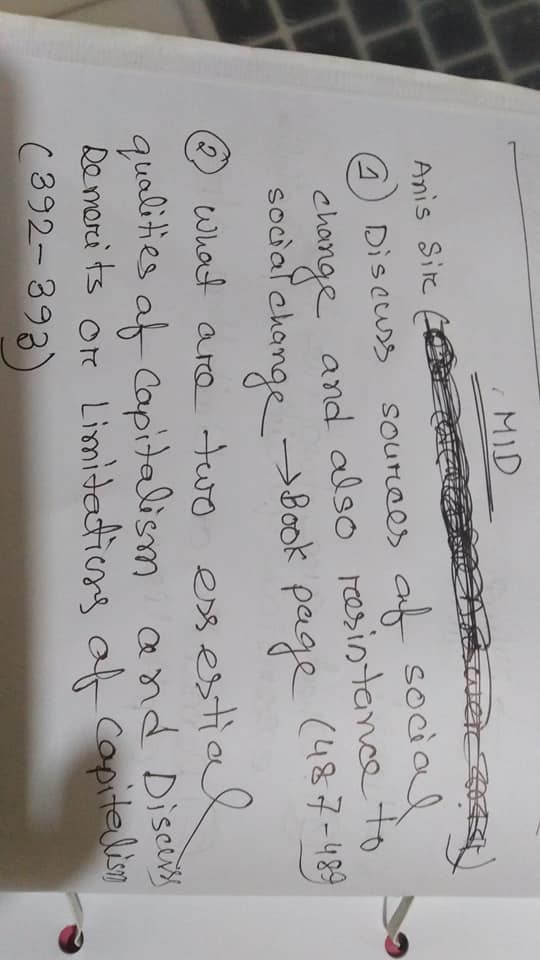 MID
Anis Sir (
① Discuss sources of social
change and also resistance to
social change → Book page (487-489
② What are two essestial
qualities of Capitalism and Discuss
Demerits or Limitations of Capitalism
(392-393)